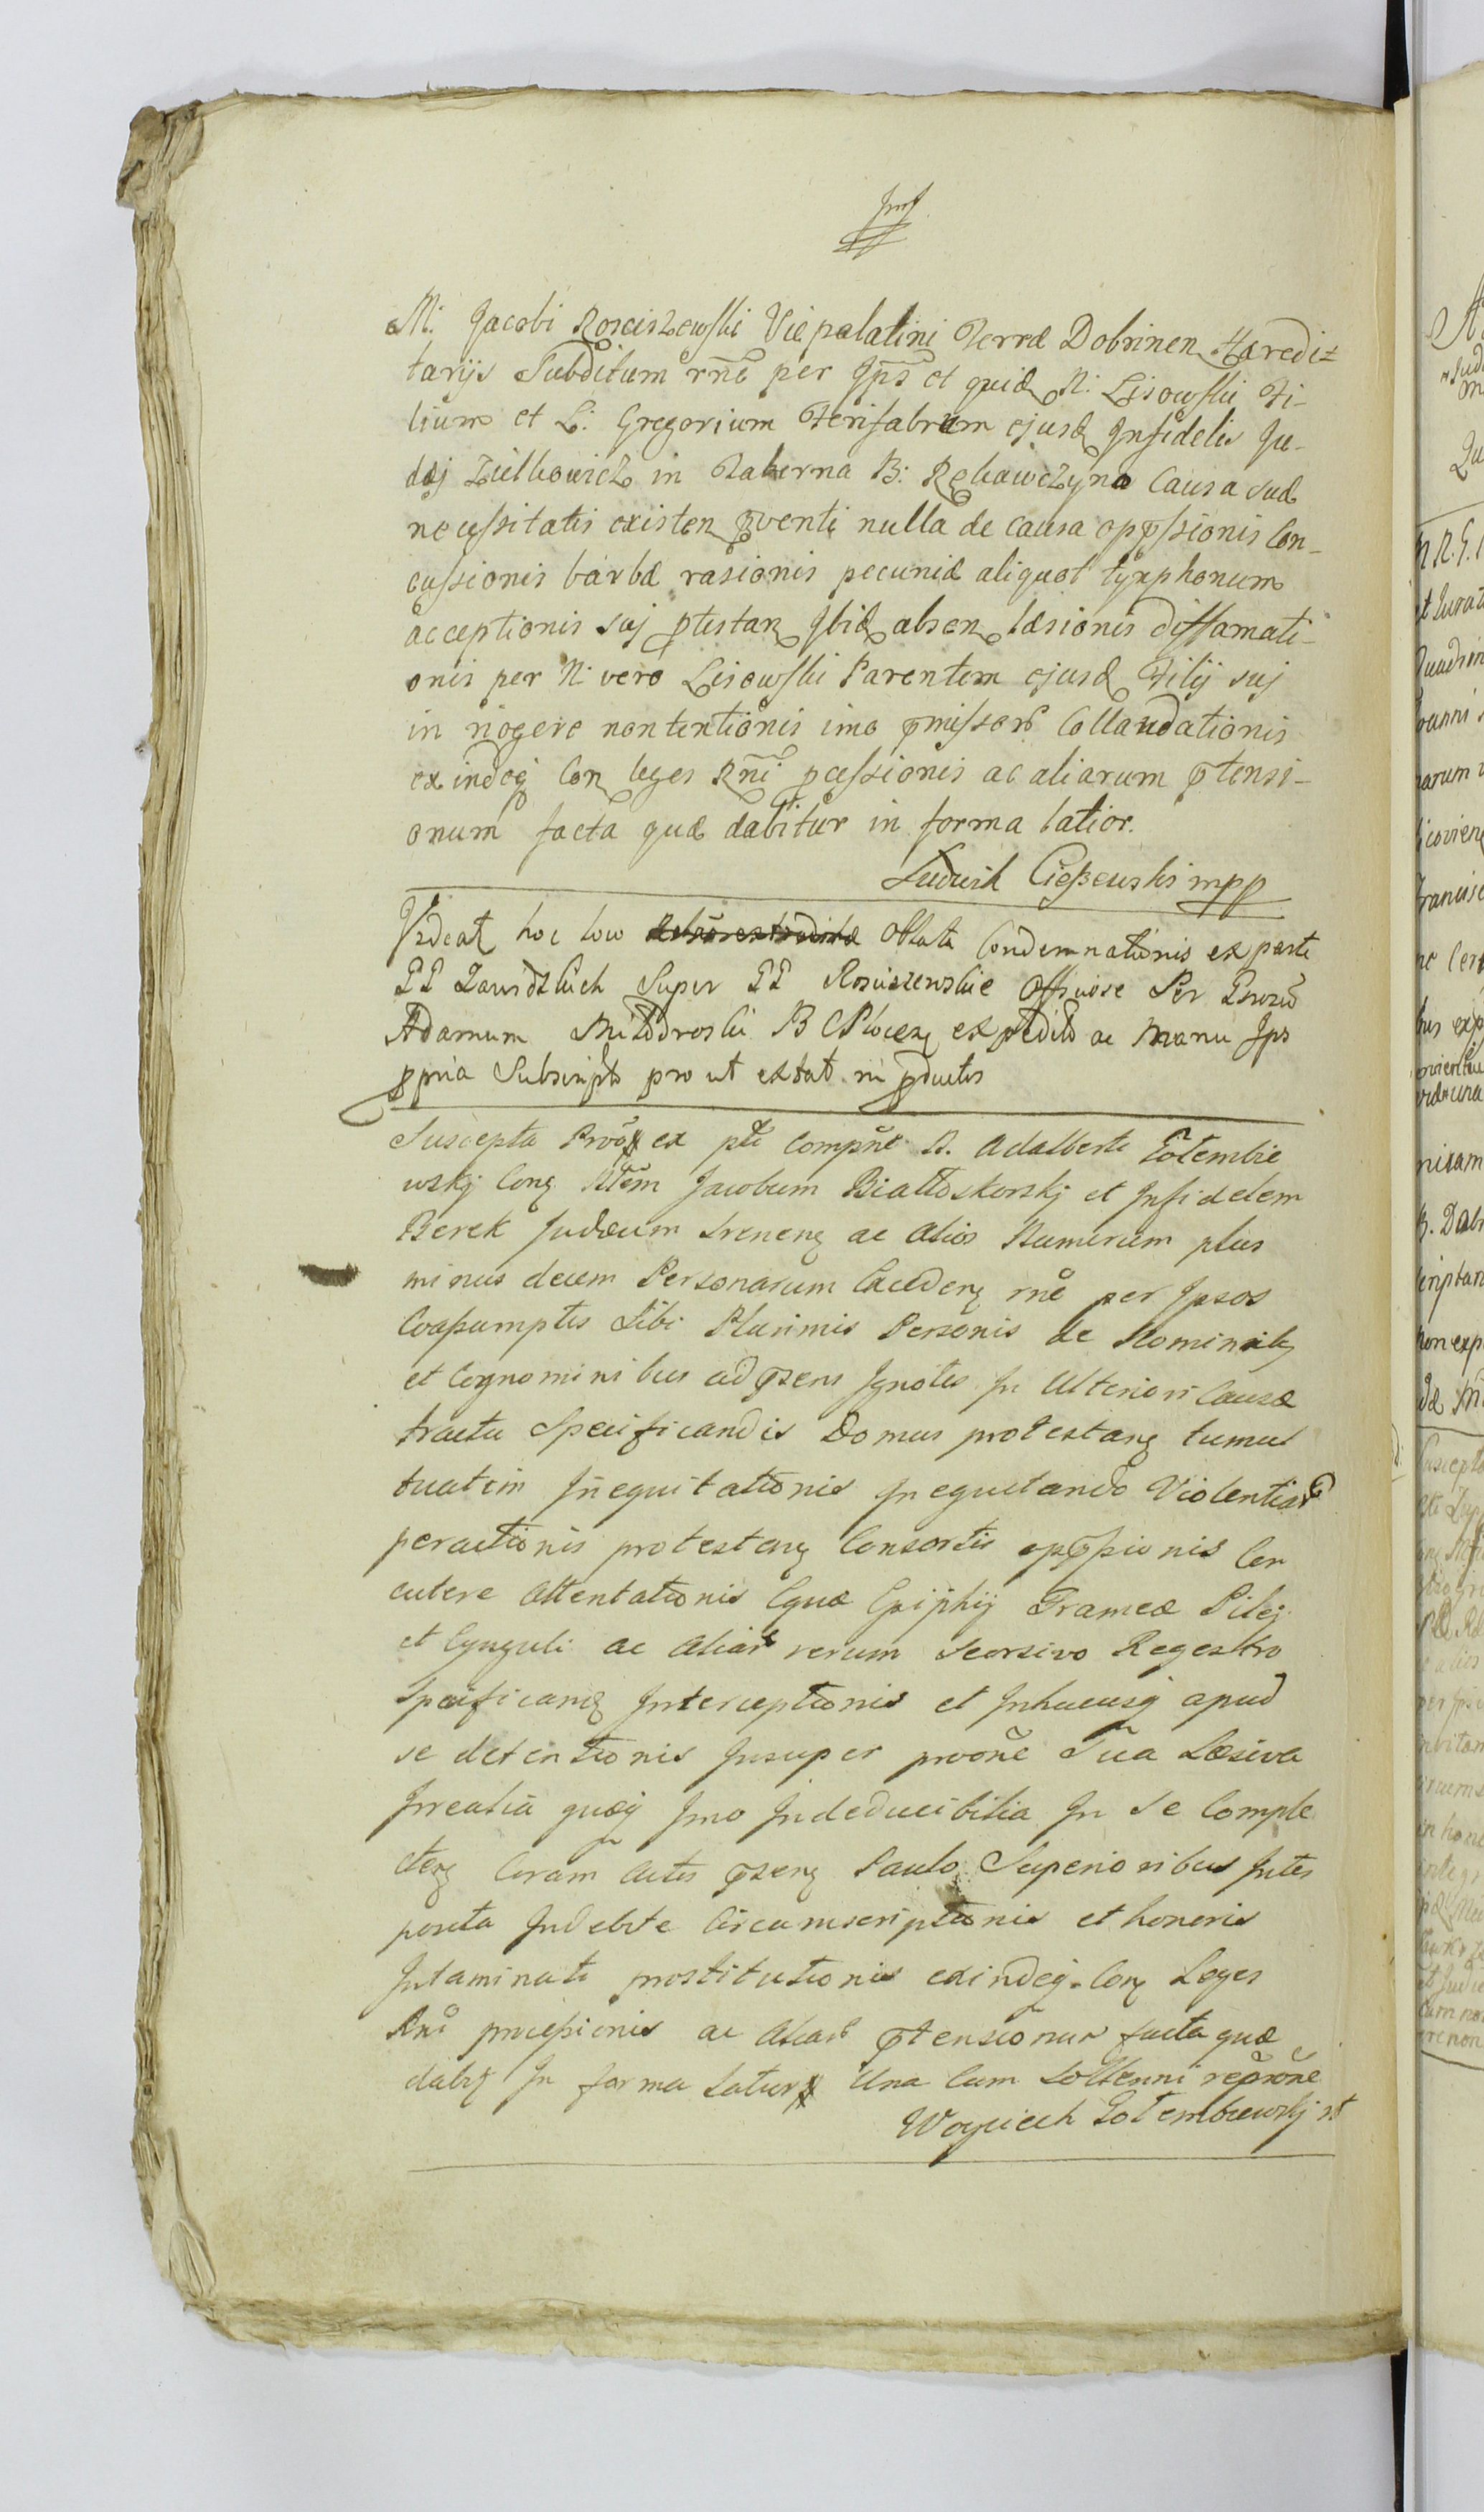 M. Jacobi Rosciszewski Vicepalatini Terræ Dobrinen Hæredi=
tarijs Subditum rñe per Ips̃ et quid N: Lisowski Fi-
lium et L: Gregorium Ferifabrum ejusd Infidelis Ju-
dæj Zielkowicz in Taberna B: Rębawczyna Causa suæ
necessitatis existen pventi nulla de causa oppssionis Con-
cussionis barbæ rasionis pecuniæ aliquot tÿmphonum
acceptionis suj ptestan Ibid absen læsionis diffamati-
onis per N. vero Lisowski Parentem ejusd Filij suj
in rigere non tentionis imo pmissorum Collaudationis
exindeq Con leges Rñi pcessionis ac aliarum ptensi-
onum facta quæ dabitur in forma latior.
Ludwik Cieszewski mpp
Videat hoc loco Oblata Condemnationis ex parte
PP Zawidzkich Super PP Rosciszewskie Officiose Per
Adamum B C Plocen expedita ac Manu Ips
ppria Subscripta pro ut extat in pductis
Suscepta Prõo ex pte Compñe N. Adalberti Gołembie
wskj Con Ntẽm Jacobum Białłoskorskj et Infidelem
Berek Judæum Srenen ac Alios Numerum plus
minus decem Personarum Exceden rñe per Ipsos
Coassumptis Sibi Plurimis Personis de Nominib
et Cognominibus ad psens Ignotis In Ulteriori Causæ
tractu Specificandis Domus protestan tumul
tuatim Inequitationis Inequitando Violentiar
peractionis protestan Consortis oppssionis Con
cutere Attentationis Equæ Epiphij Frameæ Pilej
et Cynguli ac Aliar rerum Seorsivo Regestro
Specifican Interceptionis et Inhucusq apud
se detentionis Insuper provõne Sua Læsiva
Irrealia quæq Imo Indeducibilia In Se Comple
cten Coram Actis psen Paulo Superioribus Inter
posita Indebite Circumscriptionis et honoris
Intaminati prostitutionis exindeq Con Leges
Rni processionis ac Aliar ptensionum facta quæ
dabit In forma Latiori Una Cum Sollenni
Woyciech Gołembiewskj